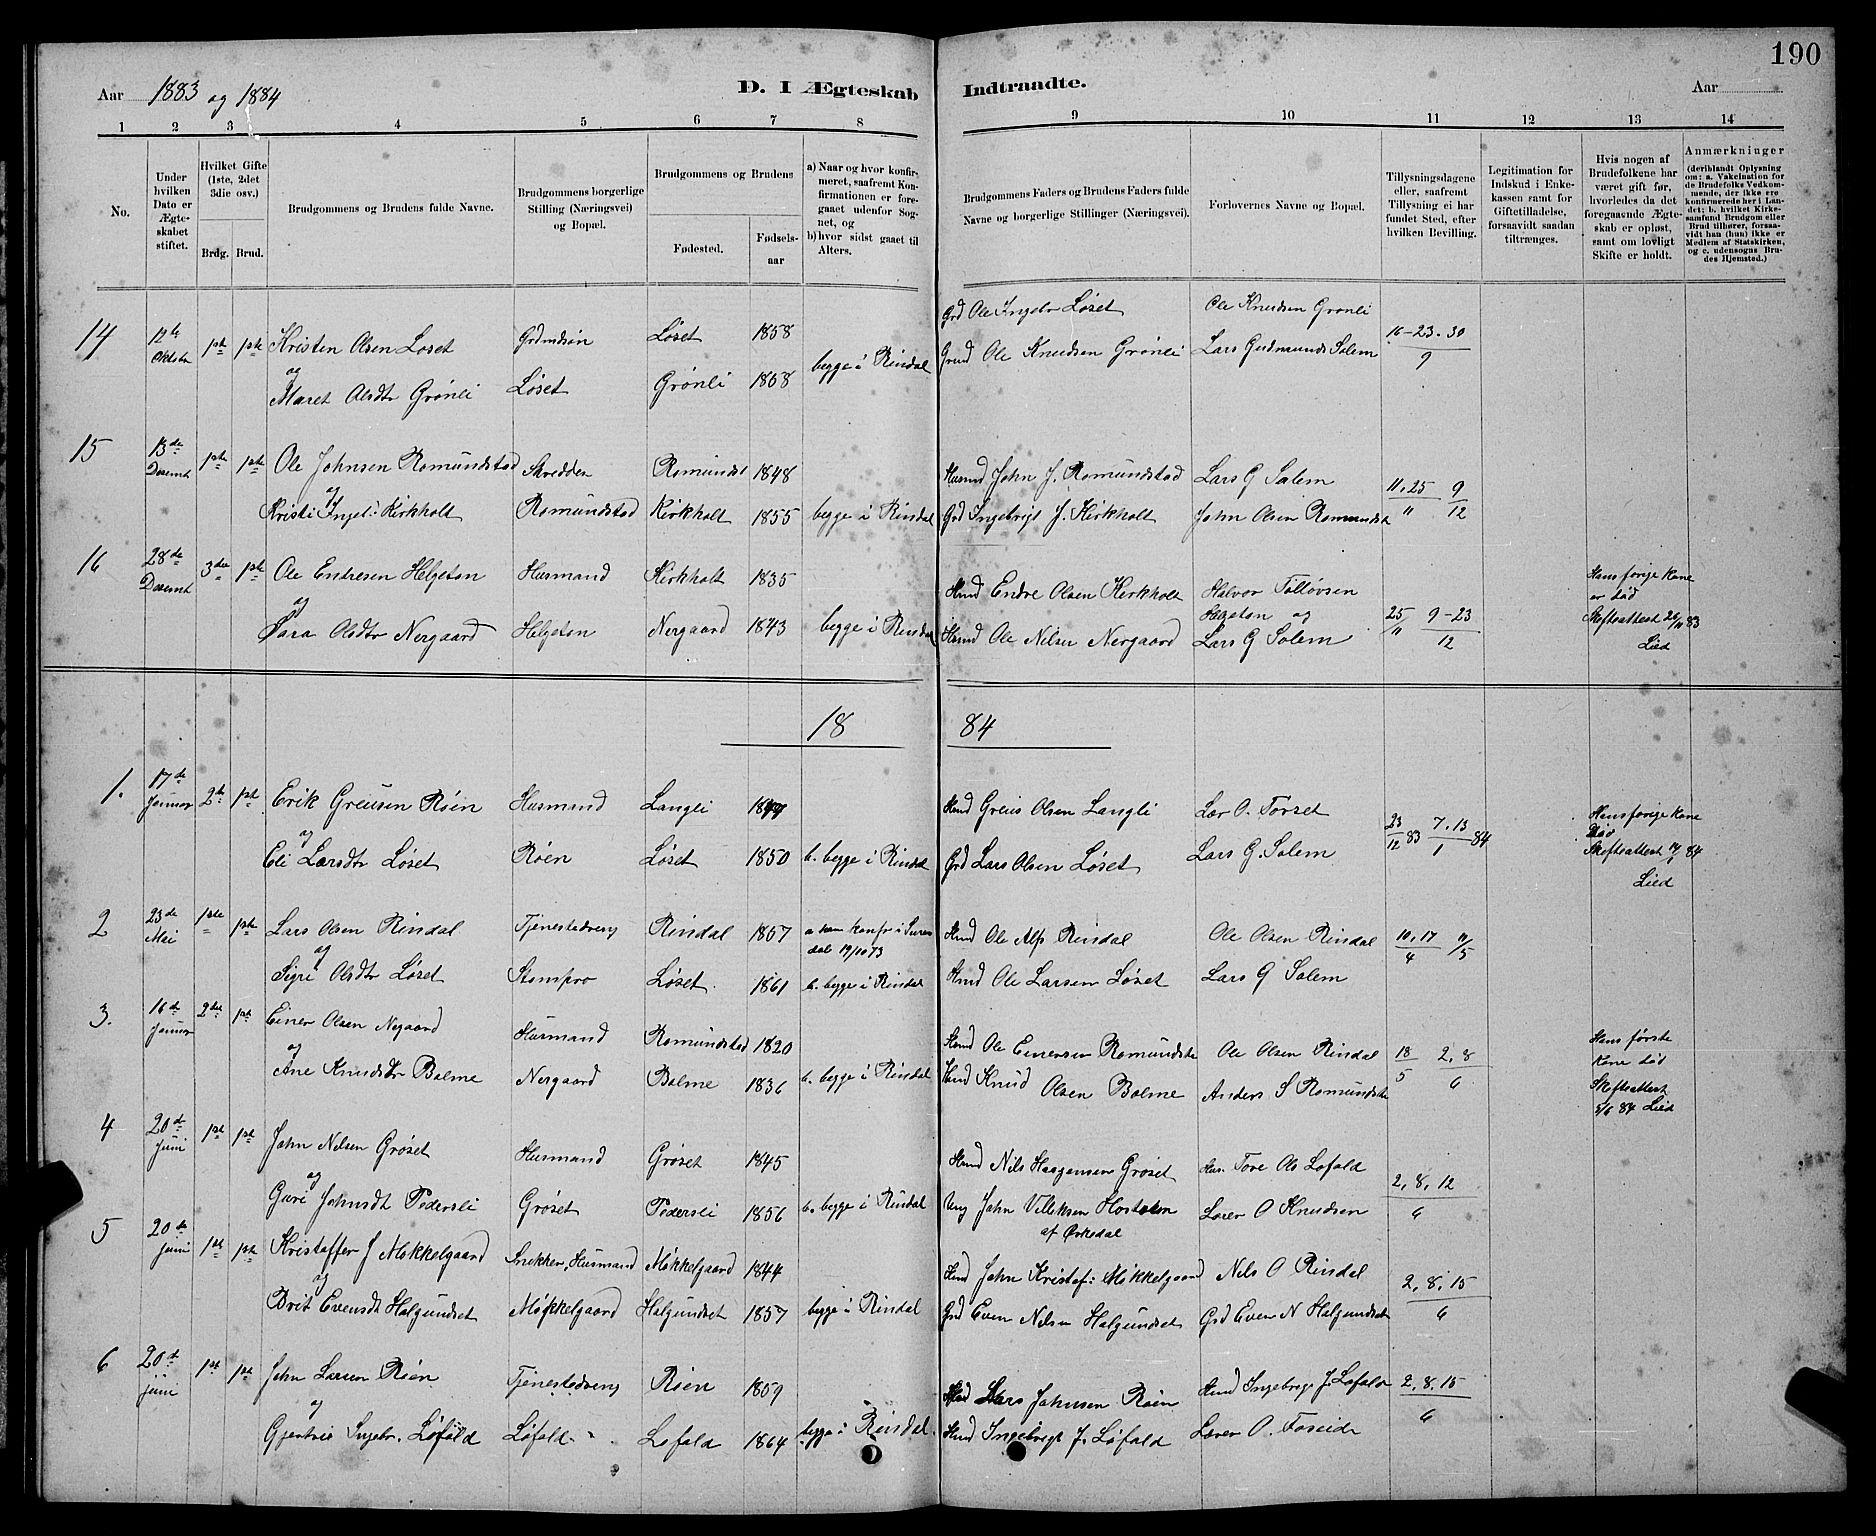 190
Aar 1883 og 1884
D. I Ægteskab Indtraadte.
Aar
1 2 3 4 5 6 7 8 9 10 11 12 13 14
No.
Under hvilken Dato er Ægteskabet stiftet.
Hvilket Gifte (1ste, 2det 3die osv.)
Brdg. Brud.
Brudgommens og Brudens fulde Navne.
Brudgommens borgerlige Stilling (Næringsvei) og Bopæl.
Brudgommens og Brudens
Fødested.
Fødsels-aar
a) Naar og hvor konfirmeret, saafremt Konfirmationen er foregaaet udenfor Sognet, og
b) hvor sidst gaaet til Alters.
Brudgommens Faders og Brudens Faders fulde Navne og borgerlige Stillinger (Næringsvei).
Forlovernes Navne og Bopæl.
Tillysningsdagene eller, saafremt Tillysning ei har fundet Sted, efter hvilken Bevilling.
Legitimation for Indskud i Enkekassen samt for Giftetilladelse, forsaavidt saadan tiltrænges.
Hvis nogen af Brudefolkene har været gift før, hvorledes da det foregaaende Ægteskab er opløst, samt om lovligt Skifte er holdt.
Anmærkninger (deriblandt Oplysning om: a. Vakcination for de Brudefolks Vedkommende, der ikke ere konfirmerede her i Landet; b. hvilket Kirkesamfund Brudgom eller Brud tilhører, forsaavidt han (hun) ikke er Medlem af Statskirken, og c. udensogns Brudes Hjemsted.)
14 12te Oktobr 1ste 1ste Kristen Olsen Løset Grdmdsøn Løset 1858 Grd Ole Ingebr Løset Ole Knudsen Grønli 16-23-30/9
og Maret Olsdtr Grønli Løset Grønli 1858 begge i Rindal Grmd Ole Knudsen Grønli Lars Gudmunds Solem
15 13de Decmb 1ste 1ste Ole Johnsen Romundstad Skredder Romundst 1848 Husmd John J. Romundstad Lars G Solem 11, 25/11 9/12
og Kristi Ingeb: Kirkholt Romundstad Kirkholt 1855 begge i Rindal Grd Ingebrigt J. Kirkholt John Olsen Romundst
16 28de Decmb 3die 1ste Ole Endresen Helgeton Husmand Kirkholt 1835 Hmd Endre Olsen Kirkholt Halvor Tølløvsen Helgeton og 25/11 9-23/12 Hans forige Kone er død
og Olsdtr Nergaard Helgeton Nergaard 1843 begge i Rindal Husmd Ole Nilsen Nergaard Lars G Solem Skifteattest 26/11 83 Lied
18 84
1. 17de Januar 2de 1ste Erik Greusen Røen Husmand Langli Hmd Greus Olsen Langli Lar O. Torset 23/12 83 7, 13/1 84 Hans forige Kone Død
og Eli Larsdtr Løset Røen Løset 1850 b. begge i Rindal Grd Lars Olsen Løset Lars G. Solem Skifteattest 84 Lied
2 23de Mai 1ste 1ste Lars Olsen Rindal Tjenestedreng Rindal 1857 a. han konfr i Surendal 19/10 73 Hmd Ole Alfs Rindal Ole Olsen Rindal 10, 17/4 11/5
og Sigri Olsdtr Løset Stompro Løset 1861 b. begge i Rindal Hmd Ole Larsen Løset Lars G Solem
3. 16de Januar 2det 1ste Einer Olsen Negaard Husmand Romundstad 1820 Hmd Ole Einersen Romundsta Ole Olsen Rindal 18/5 2, 8/6 Hans første Kone død
og Ane Knudsdtr Bolme Nergaard Bolme 1836 b. begge i Rindal Hmd Knud Olsen Bolme Anders S Romundsta Skifteattest 5/6 84 Lied
4 20de Juni 1ste 1ste John Nilsen Grøset Husmand Grøset 1845 Hmd Nils Haagensen Grøset Hus. Tore Ols Lofald 2, 8, 12/6
og Guri Johnsdt Pedersli Grøset Pedersli 1856 b. begge i Rindal Ung John Villiksen af Ørkedal Lorer O Knudsen
5 20de Juni 1ste 1ste Kristoffer J Møkkelgaard Snekker, Husmand Møkkelgaard 1844 Hmd John Kristof: Møkkelgaard Nils O Rindal 2, 8, 15/6
og Brit Evensdt Halgundset Møkkelgaard Halgundset 1857 begge i Rindal Grd Even Nilsen Halgundset Grd Even N Halgundset
6 20de Juni 1ste 1ste John Larsen Røen Tjenestedreng Røen 1859 Hmd Lars Johnsen Røen Hmd Ingebrigt J. Lofald 2, 8, 15/6
og Gjertrud Ingebr. Løfald Løfald Lofald 1864 begge i Rindal. Hmd Ingebrigt J. Løfald Lorer O. Foseide